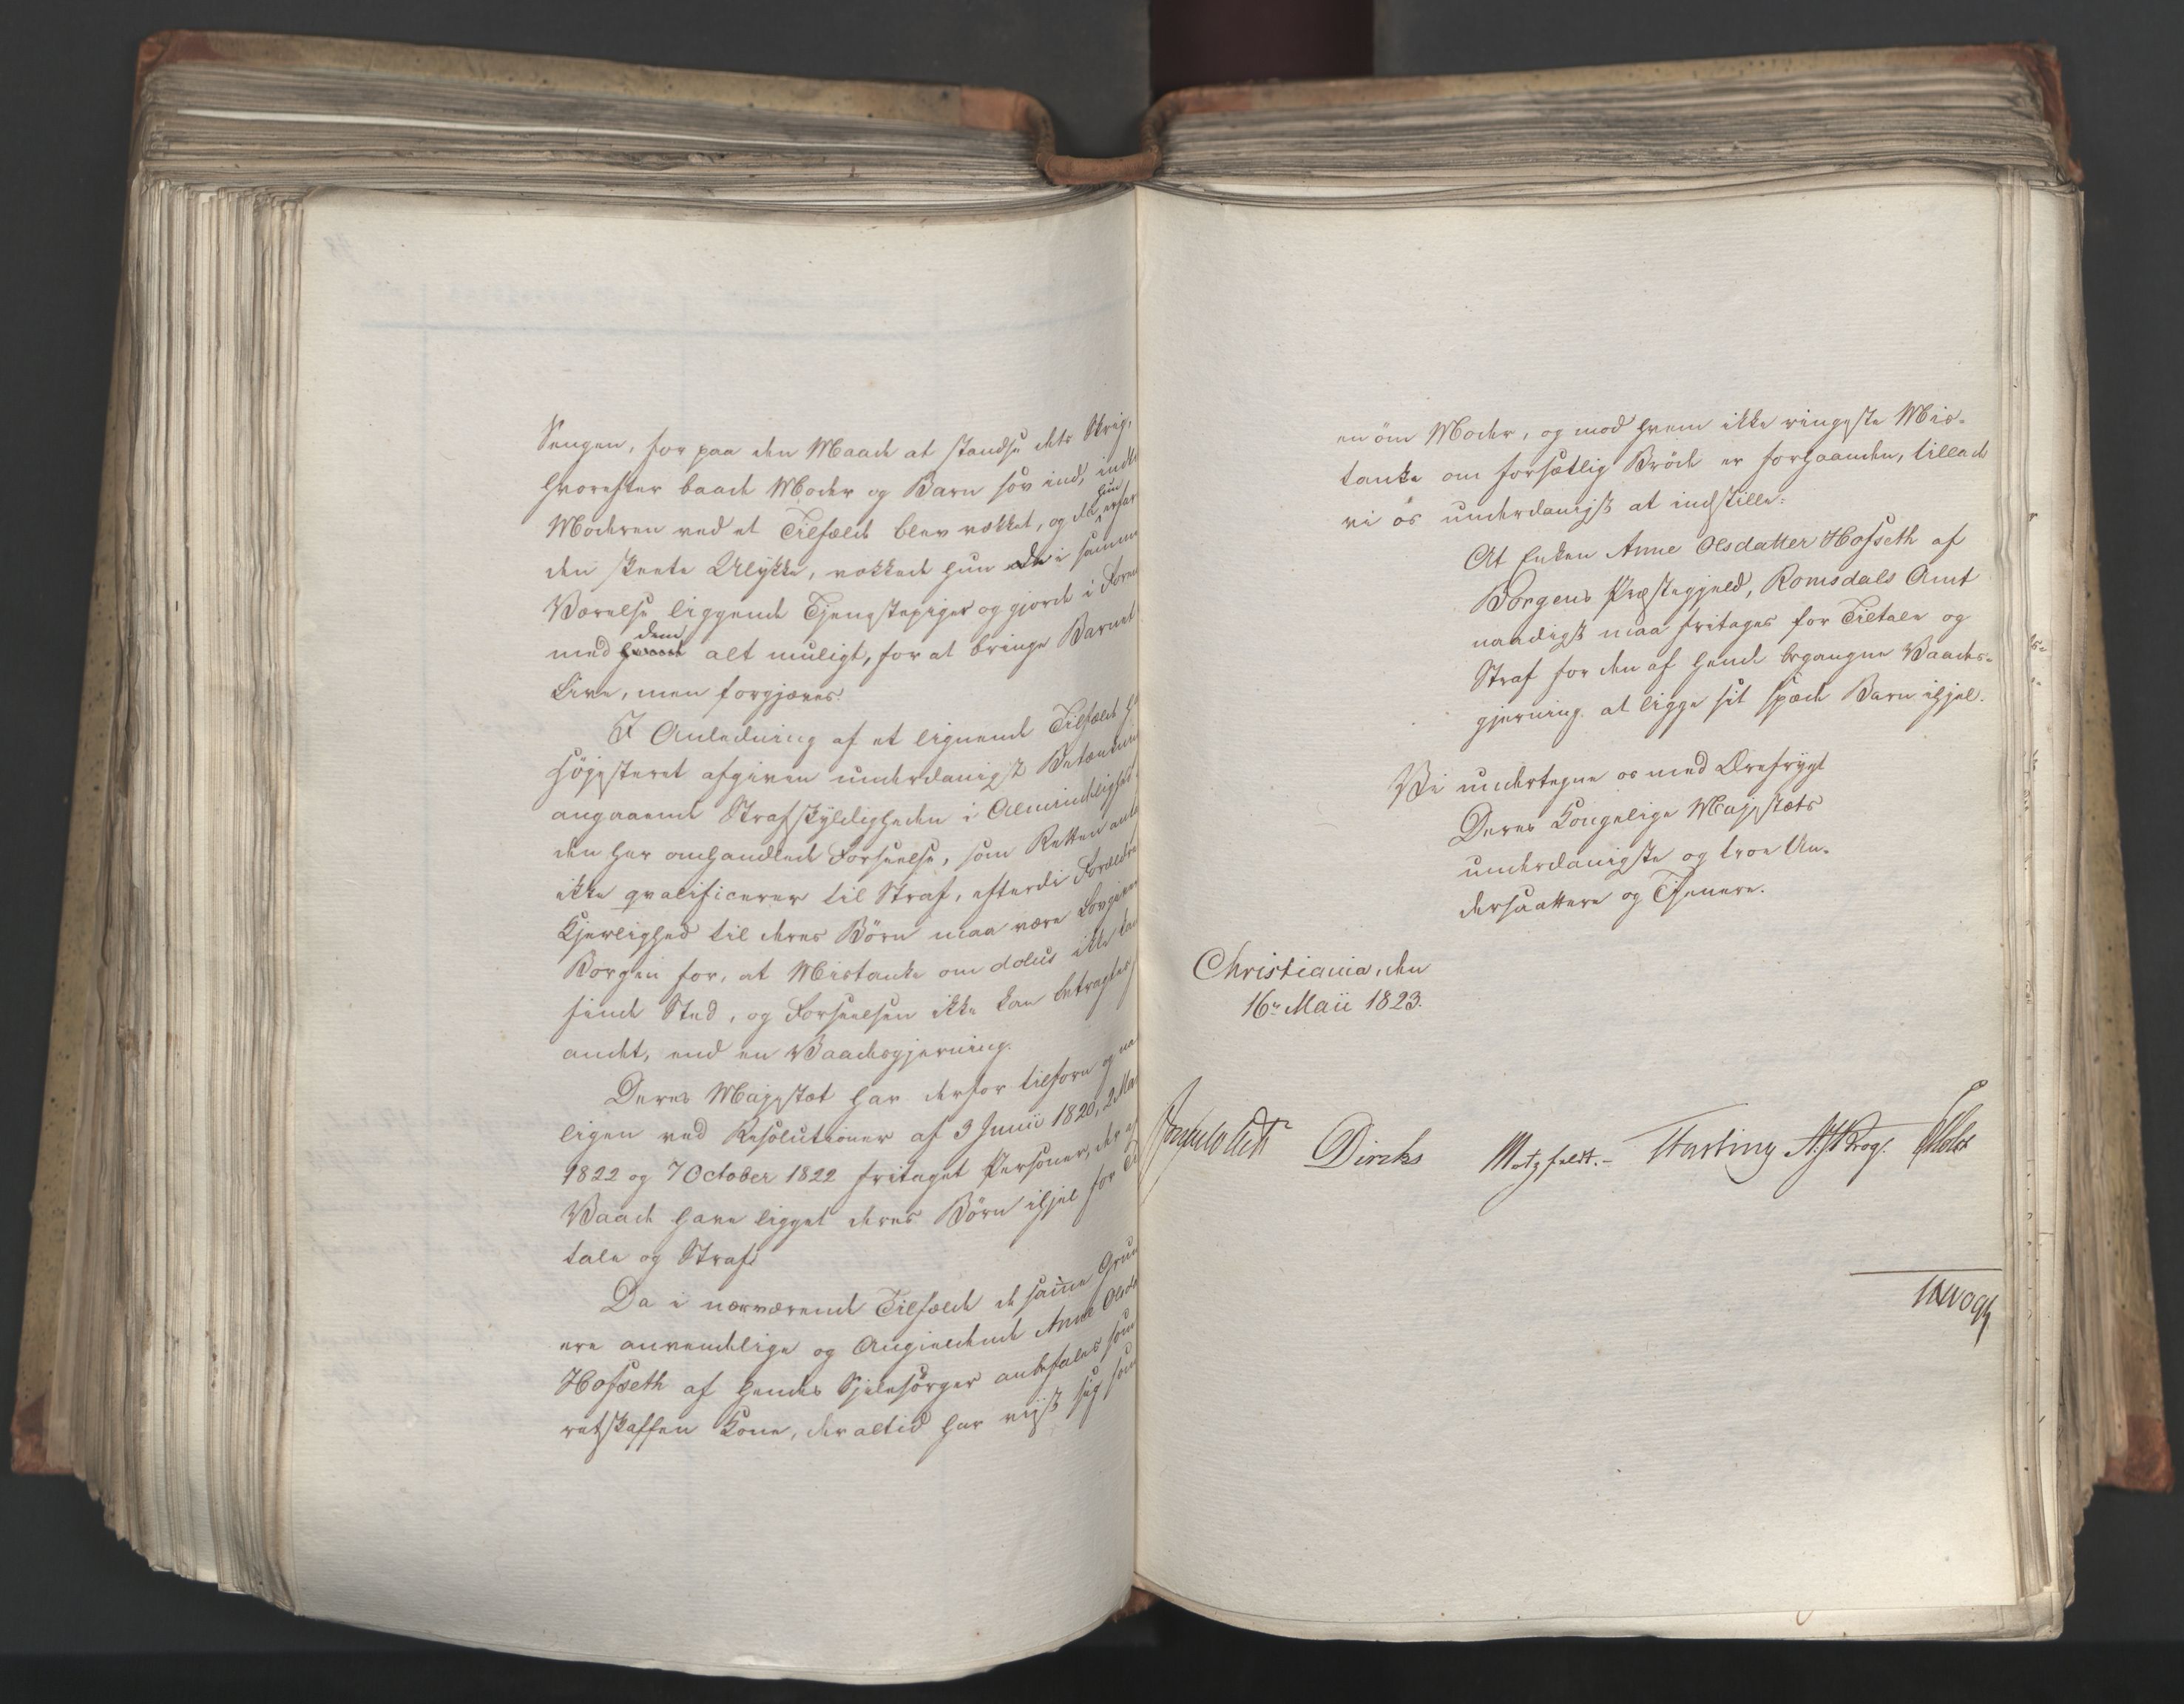 Sengen, for paa den Maade at standse dets Skrig,
hvorefter baade Moder og Barn sov ind, indtil
Moderen ved et Tilfælde blev vækket, og da hun erfar
den skeete Ulykke, vækkede hun de i samme
Værelse liggende Tjenestepiger og gjorde i Foren
med dem alt muligt, for at bringe Barnet
Live, men forgjæves.
I Anledning af et lignende Tilfælde
Højesteret afgiven underdanigst Betænkn
angaaende Strafskyldigheden i Almindelighed
den her omhandlede Forseelse, som Retten anta
ikke qvalificerer til Straf, efterdi Forældre
Kjerlighed til deres Børn maa være Lovgiver
Borgen for, at Mistanke om dolus ikke kan
finde Sted, og Forseelsen ikke kan betragtes
andet, end en Vaadesgjerning.
Deres Majestæt har derfor tilforn og na
ligen ved Resolutioner af 3 Junii 1820, 2 Ma
1822 og 7 October 1822 fritaget Personer, der af
Vaade have ligget deres Børn ihjel for Til
tale og Straf.
Da i nærværende Tilfælde de samme Grun
ere anvendelige og Angjeldende Anne Olsda
Hofseth af hendes Sjelesørger anbefales som
retskaffen Kone, der altid har viist sig som
en öm Moder, og mod hvem ikke ringeste Mis-
tanke om forsætlig Bröde er forhaanden, tillade
vi os underdanigst at indstille:
At Enken Anne Olsdatter Hofseth af
Borgens Præstegjeld, Romsdals Amt
naadigst maa fritages for Tiltale og
Straf for den af hende begangne Vaades-
gjerning at ligge sit spæde Barn ihjel.
Vi undertegne os med Ærefrygt
Deres Kongelige Majestæts
underdanigste og troe Un-
dersaattere og Tjenere.
Christiania, den
16de Maii 1823.
Diriks Motzfeldt.- Fasting A: Krog. Holst